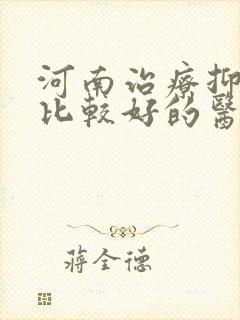 河南治療抑
比較好的醫
蔣全德